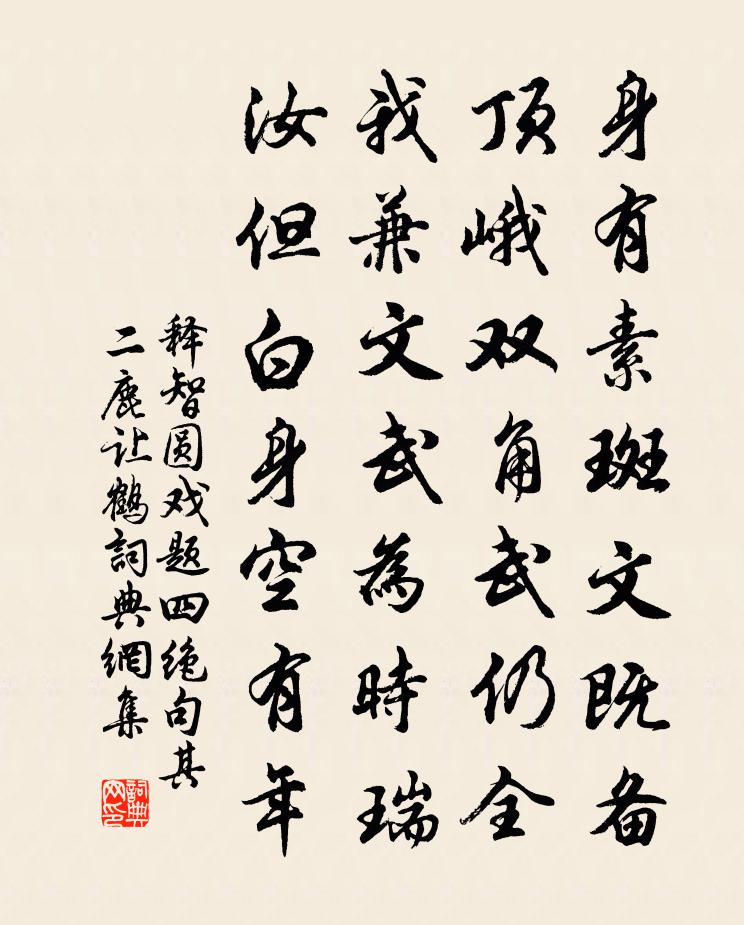 身有素斑文既备
顶峨双角武仍全
我兼文武為時瑞
汝但白身空有年
释智圆戏题四绝句其
二鹿让鶴詞典網集
詞典
网印